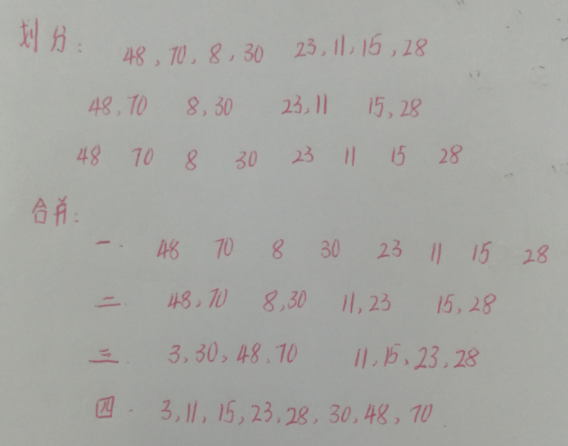 划分: 48, 70, 8, 30 23, 11, 15, 28
48, 70 8, 30 23, 11 15, 28
48 70 8 30 23 11 15 28
合并:
一. 48 70 8 30 23 11 15 28
二. 48, 70 8, 30 11, 23 15, 28
三. 3, 30, 48, 70 11, 15, 23, 28
四. 3, 11, 15, 23, 28, 30, 48, 70